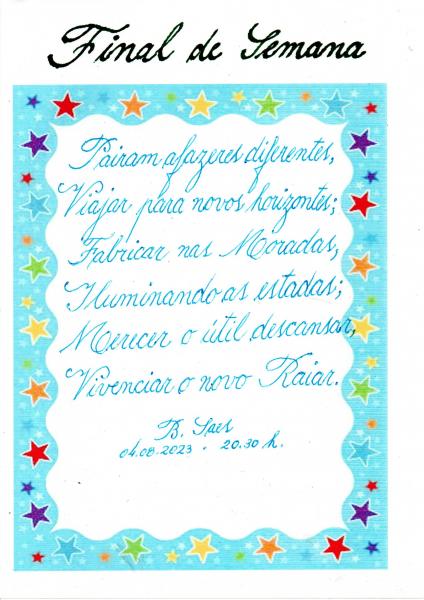 Final de Semana
Pairam afazeres diferentes,
Viajar para novos horizontes;
Fabricar nas Moradas,
Iluminando as estadas;
Merecer o útil descansar,
Vivenciar o novo Raiar.
B. Saes
04.08.2023 - 20.30 h.